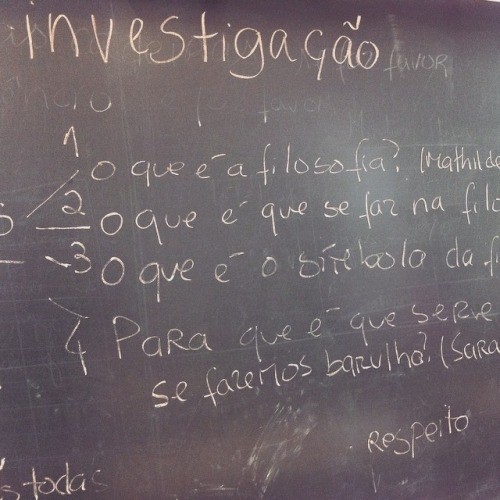 investigação
favor
1 O que é a filosofia? (Mathilde
2 O que é que se faz na filo
3 O que é o símbolo da fi
4 Para que é que serve
se fazemos barulho? (Sara
respeito
s todas